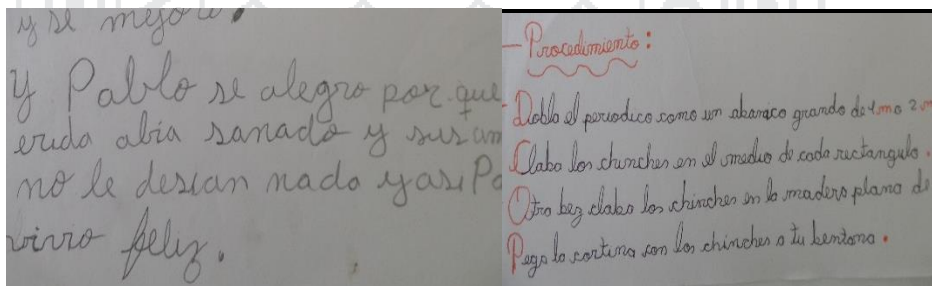 y se mejoro.
y Pablo se alegro por que
erida abia sanado y sus am
no le desian nado y asi Pa
vivio feliz.
- Procedimiento:
- Doblo el periodico como un abanico grando de 1 mo 2 m
Clabo los chinches en el medio de cada rectangulo.
Otro bez clabo los chinches en lo madero plano de
Pego lo cortino con los chinches o tu bentono.